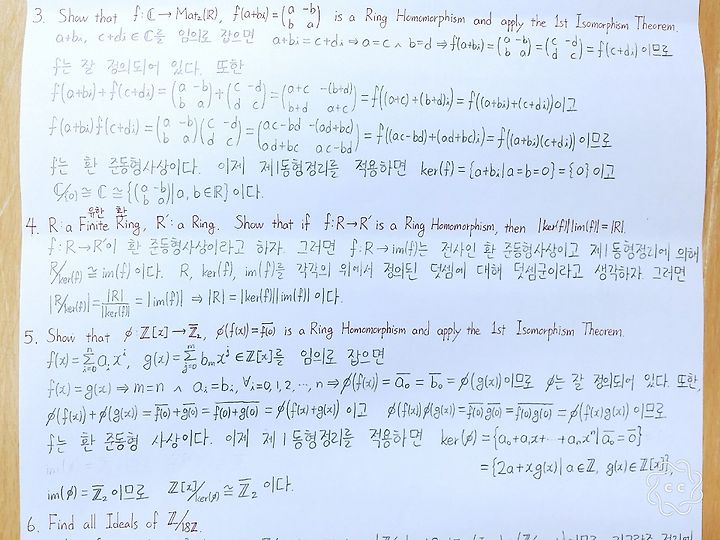 3. Show that f: ℂ → Mat₂(ℝ), f(a+bi) = (a -b / b a) is a Ring Homomorphism and apply the 1st Isomorphism Theorem.
a+bi, c+di ∈ ℂ를 임의로 잡으면 a+bi = c+di ⇒ a=c ∧ b=d ⇒ f(a+bi) = (a -b / b a) = (c -d / d c) = f(c+di) 이므로
f는 잘 정의되어 있다. 또한
f(a+bi)+f(c+di) = (a -b / b a) + (c -d / d c) = (a+c -(b+d) / b+d a+c) = f((a+c)+(b+d)i) = f((a+bi)+(c+di)) 이고
f(a+bi)f(c+di) = (a -b / b a)(c -d / d c) = (ac-bd -(ad+bc) / ad+bc ac-bd) = f((ac-bd)+(ad+bc)i) = f((a+bi)(c+di)) 이므로
f는 환 준동형사상이다. 이제 제1동형정리를 적용하면 ker(f) = {a+bi | a=b=0} = {0} 이고
ℂ/{0} ≅ ℂ ≅ {(a -b / b a) | a, b ∈ ℝ} 이다.
유한 환
4. R: a Finite Ring, R′: a Ring. Show that if f: R → R′ is a Ring Homomorphism, then |ker(f)||im(f)| = |R|.
f: R → R′이 환 준동형사상이라고 하자. 그러면 f: R → im(f)는 전사인 환 준동형사상이고 제1동형정리에 의해
R/ker(f) ≅ im(f) 이다. R, ker(f), im(f)를 각각의 위에서 정의된 덧셈에 대해 덧셈군이라고 생각하자. 그러면
|R/ker(f)| = |R|/|ker(f)| = |im(f)| ⇒ |R| = |ker(f)||im(f)| 이다.
5. Show that φ: ℤ[x] → ℤ̄₂, φ(f(x)) = f̅(̅0̅)̅ is a Ring Homomorphism and apply the 1st Isomorphism Theorem.
f(x) = Σⁿᵢ₌₀ aᵢxⁱ, g(x) = Σᵐⱼ₌₀ bₘxʲ ∈ ℤ[x]를 임의로 잡으면
f(x) = g(x) ⇒ m=n ∧ aᵢ=bᵢ, ∀i=0,1,2,…, n ⇒ φ(f(x)) = a̅₀ = b̅₀ = φ(g(x)) 이므로 φ는 잘 정의되어 있다. 또한,
φ(f(x))+φ(g(x)) = f̅(̅0̅)̅+g̅(̅0̅)̅ = f̅(̅0̅)̅+̅g̅(̅0̅)̅ = φ(f(x)+g(x)) 이고 φ(f(x))φ(g(x)) = f̅(̅0̅)̅ g̅(̅0̅)̅ = f̅(̅0̅)̅g̅(̅0̅)̅ = φ(f(x)g(x)) 이므로
f는 환 준동형 사상이다. 이제 제1동형정리를 적용하면 ker(φ) = {a₀+a₁x+⋯+aₙxⁿ | a̅₀ = 0̅}
= {2a+xg(x) | a∈ℤ, g(x)∈ℤ[x]},
im(φ) = ℤ̄₂ 이므로 ℤ[x]/ker(φ) ≅ ℤ̄₂ 이다.
cc
6. Find all Ideals of ℤ/18ℤ.